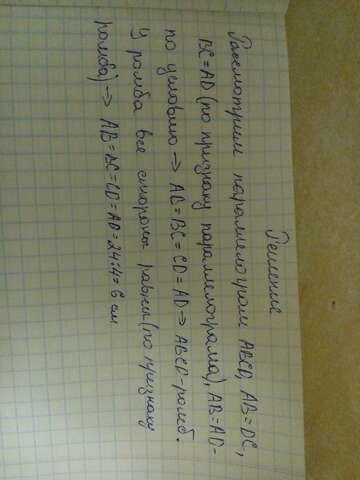 Решение
Рассмотрим параллелограм ABCD, AB=DC,
BC=AD (по признаку параллелограма), AB=AD-
по условию → AB=BC=CD=AD → ABCD-ромб.
У ромба все стороны равны (по признаку
ромба) → AB=BC=CD=AD=24:4=6 см